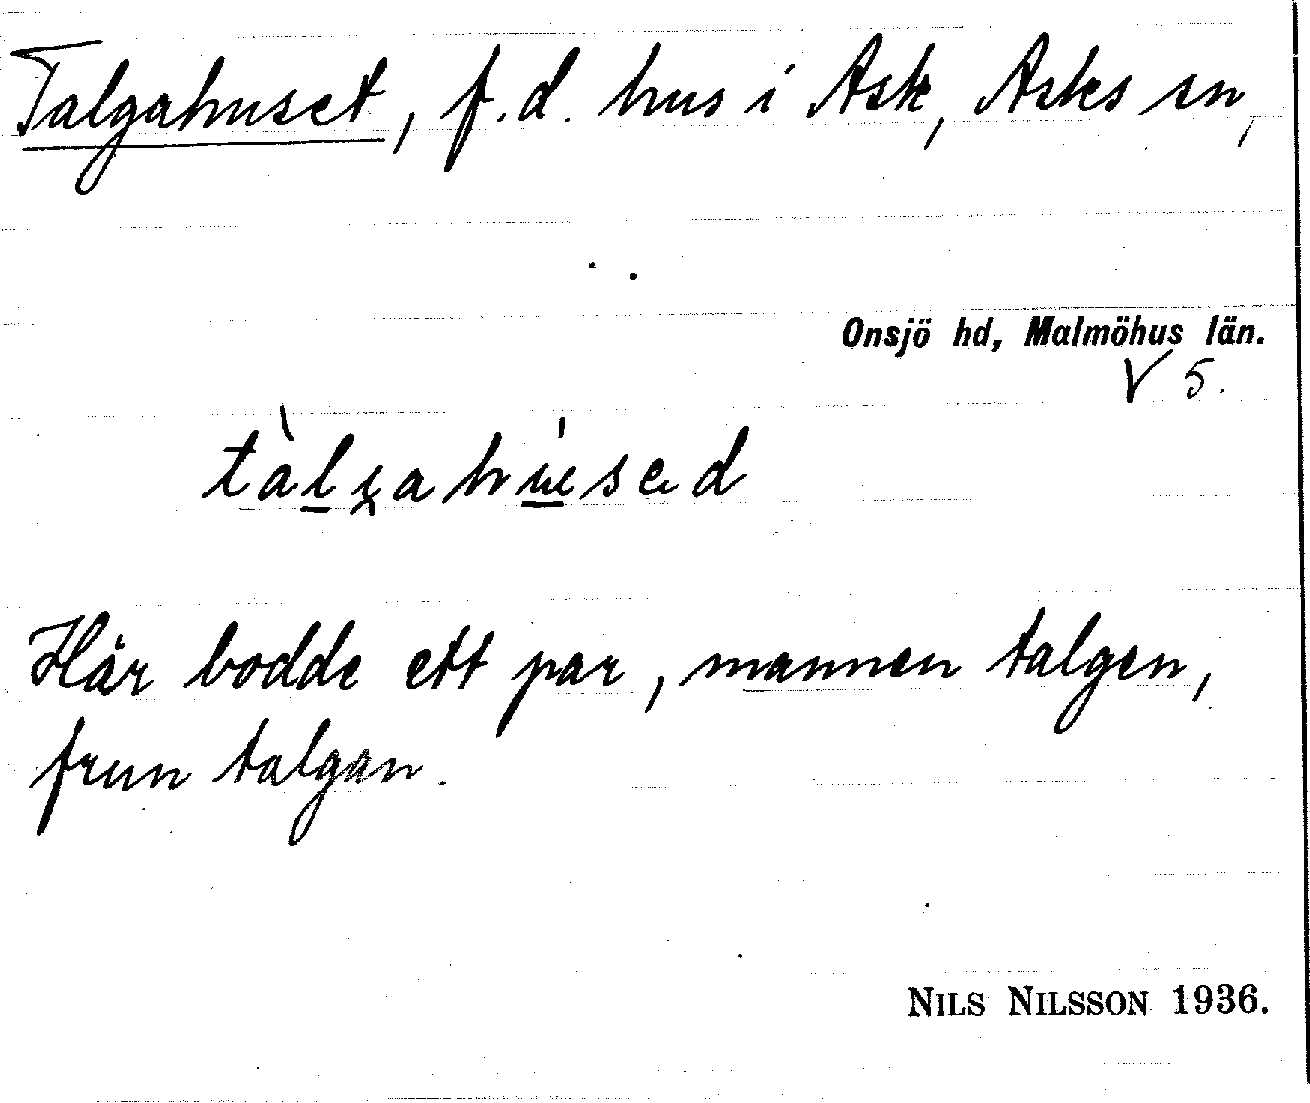 Talgahuset, f.d. hus i Ask, Asks sn,
Onsjö hd, Malmöhus län.
V 5.
Här bodde ett par, mannen talgen,
frun talgan.
NILS NILSSON 1936.